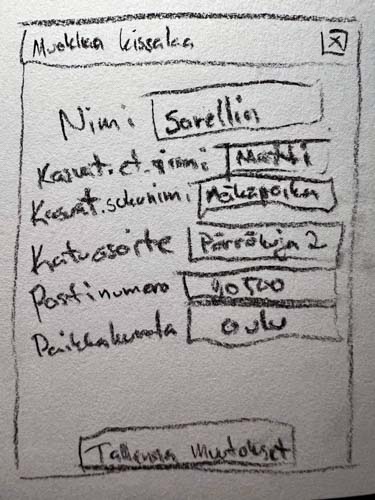 Muokkaa kissalaa X
Nimi Sarellin
Kasvat.et.nimi Matti
Kasvat.sukunimi Mäkäpoika
Katuosoite Pärräkuja 2
Postinumero 90500
Paikkakunta Oulu
Tallenna muutokset